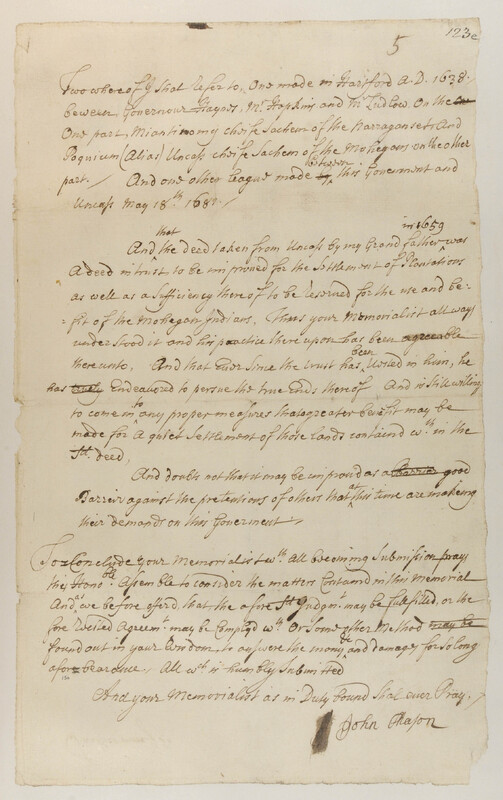 123c
5
Two whereof yt shal Refer to, One made in Hartford A.D. 1638.
beween Governour Haynes, Mr Hopkins and Mr Ludlow, on the
One part, Miantinomy cheife Sachem of the Narragansets And
Poquium (Alias) Uncass cheife Sachem of the Mohegans on the other
part. And one other league made between this Government and
Uncass May 18th 1681.
that in 1659
And the deed taken from Uncass by my Grand father was
A deed in trust to be improved for the Settlement of Plantations
as well as a Sufficiency thereof to be Reserved for the use and be-
-fit of the Mohegan Indians. Thats your Memorialist all way
understood it and his practice there upon has been agreeable
thereunto. And that Ever Since the trust has been Vested in him, he
has Endeavored to persue the true Ends thereof And is still willing
to come into any proper measures that a greater benefit may be
made for A quiet Settlement of those lands containd wth in the
Sd. deed,
And doubts not that it may be improved as a Barrier good
Barrier against the pretentions of others that at this time are making
their demands on this Goverment
To Conclude your Memorialist wth All becoming Submission pray
this Honoble Assemble to consider the matters Containd in this Memorial
And as we before offerd that the afore Sd Judgmt may be fulfilled, or the
fore Recited Agreemt may be Employd wth Or Some other Method may be
found out in your Wisdom to answere the mony and damage for So long
a forbearance, All wch is humbly Submitted
And your Memorialist as in Duty bound Shal ever Pray.
John Mason